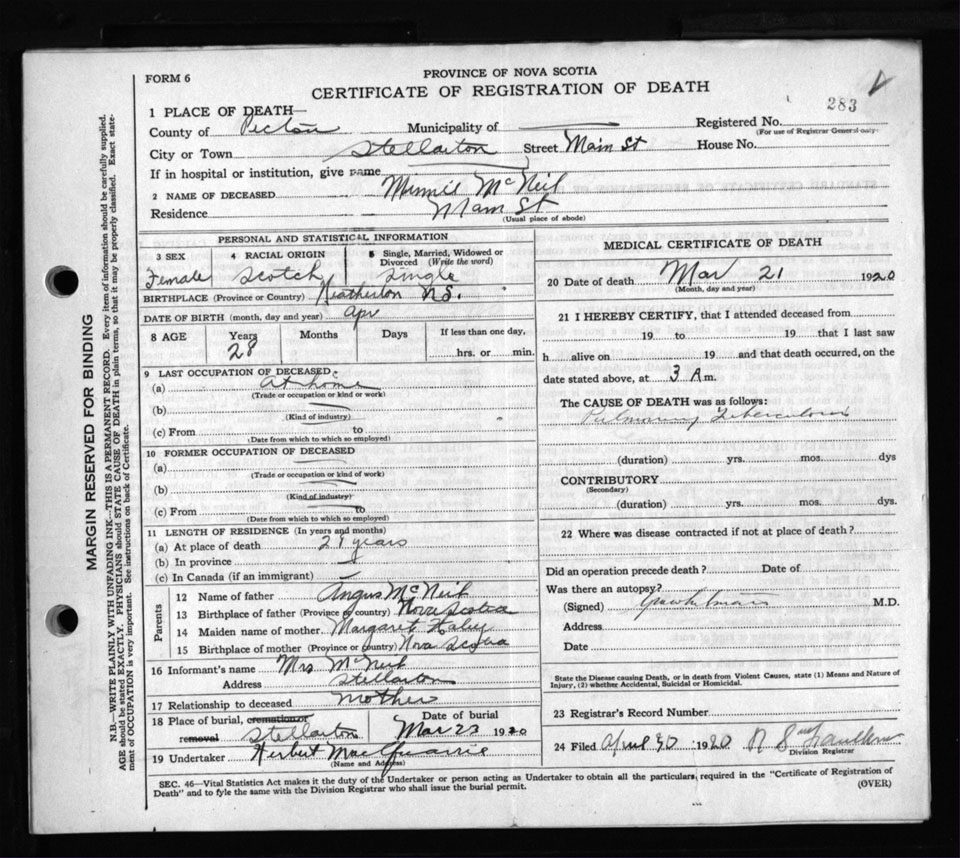 PROVINCE OF NOVA SCOTIA
FORM 6
CERTIFICATE OF REGISTRATION OF DEATH
283
1 PLACE OF DEATH—
County of Pictou Municipality of — Registered No.
(For use of Registrar General only.
City or Town Stellarton Street Main St House No.
If in hospital or institution, give name
2 NAME OF DECEASED Minnie McNeil
Residence Main St
(Usual place of abode)
PERSONAL AND STATISTICAL INFORMATION
3 SEX 4 RACIAL ORIGIN 5 Single, Married, Widowed or Divorced (Write the word)
Female Scotch Single
BIRTHPLACE (Province or Country) Heatherton N.S.
DATE OF BIRTH (month, day and year) Apr
8 AGE Years Months Days If less than one day,
28 hrs. or min.
9 LAST OCCUPATION OF DECEASED:
(a) at home
(Trade or occupation or kind or work)
(b)
(Kind of industry)
(c) From to
(Date from which to which so employed)
10 FORMER OCCUPATION OF DECEASED
(a)
(Trade or occupation or kind of work)
(b)
(Kind of industry)
(c) From to
(Date from which to which so employed)
11 LENGTH OF RESIDENCE (In years and months)
(a) At place of death years
(b) In province
(c) In Canada (if an immigrant)
Parents
12 Name of father Angus McNeil
13 Birthplace of father (Province or country) Nova Scotia
14 Maiden name of mother Margaret
15 Birthplace of mother (Province or country) Nova Scotia
16 Informant's name Mrs McNeil
Address Stellarton
17 Relationship to deceased Mother
18 Place of burial, cremation or removal Stellarton
Date of burial
Mar 23 1920
19 Undertaker Herbert MacQuarrie
(Name and Address)
MEDICAL CERTIFICATE OF DEATH
20 Date of death Mar 21 1920
(Month, day and year)
21 I HEREBY CERTIFY, that I attended deceased from
19 to 19 that I last saw
h alive on 19 and that death occurred, on the
date stated above, at 3 A m.
The CAUSE OF DEATH was as follows:
Pulmonary Tuberculosis
(duration) yrs. mos. dys
CONTRIBUTORY
(Secondary)
(duration) yrs. mos. dys.
22 Where was disease contracted if not at place of death?
Did an operation precede death? Date of
Was there an autopsy?
(Signed) M.D.
Address
Date
State the Disease causing Death, or in death from Violent Causes, state (1) Means and Nature of
Injury, (2) whether Accidental, Suicidal or Homicidal.
23 Registrar's Record Number
24 Filed April 30 1920
Division Registrar
SEC. 46—Vital Statistics Act makes it the duty of the Undertaker or person acting as Undertaker to obtain all the particulars required in the "Certificate of Registration of
Death" and to fyle the same with the Division Registrar who shall issue the burial permit.
(OVER)
MARGIN RESERVED FOR BINDING
N.B.—WRITE PLAINLY WITH UNFADING INK—THIS IS A PERMANENT RECORD. Every item of information should be carefully supplied.
AGE should be stated EXACTLY. PHYSICIANS should STATE CAUSE OF DEATH in plain terms, so that it may be properly classified. Exact state-
ment of OCCUPATION is very important. See instructions on back of Certificate.